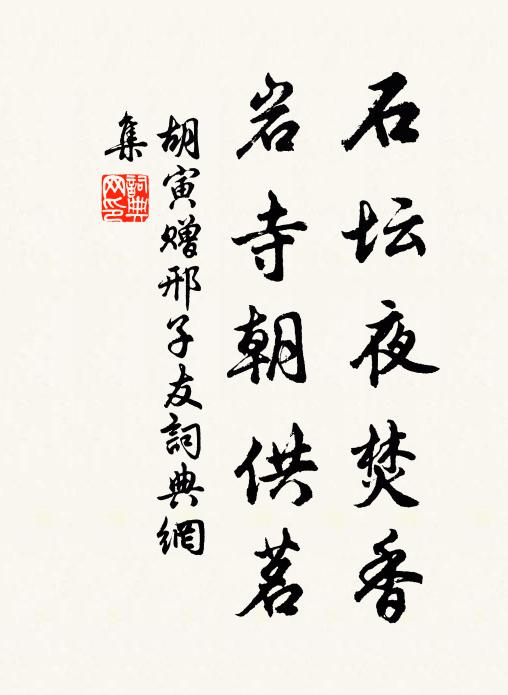 石坛夜焚香
岩寺朝供茗
胡寅赠邢子友詞典網
集
詞典网印